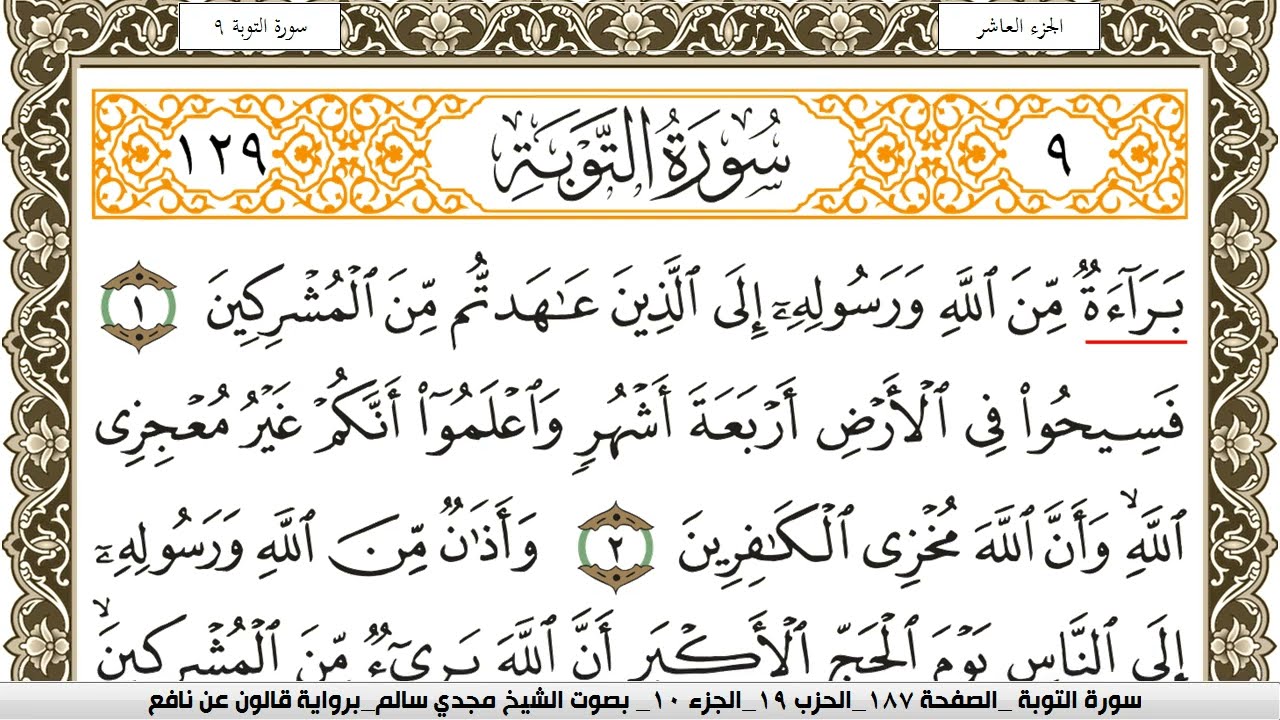 الجزء العاشر
سورة التوبة ٩
٩ سُورَةُ التَّوْبَةِ ١٢٩
بَرَآءَةٌ مِّنَ ٱللَّهِ وَرَسُولِهِۦٓ إِلَى ٱلَّذِينَ عَٰهَدتُّم مِّنَ ٱلْمُشْرِكِينَ ١
فَسِيحُوا۟ فِى ٱلْأَرْضِ أَرْبَعَةَ أَشْهُرٍ وَٱعْلَمُوٓا۟ أَنَّكُمْ غَيْرُ مُعْجِزِى
ٱللَّهِ ۙ وَأَنَّ ٱللَّهَ مُخْزِى ٱلْكَٰفِرِينَ ٢ وَأَذَٰنٌ مِّنَ ٱللَّهِ وَرَسُولِهِۦٓ
إِلَى ٱلنَّاسِ يَوْمَ ٱلْحَجِّ ٱلْأَكْبَرِ أَنَّ ٱللَّهَ بَرِىٓءٌ مِّنَ ٱلْمُشْرِكِينَ ۙ
سورة التوبة _الصفحة ١٨٧_الحزب ١٩_الجزء ١٠_ بصوت الشيخ مجدي سالم_برواية قالون عن نافع